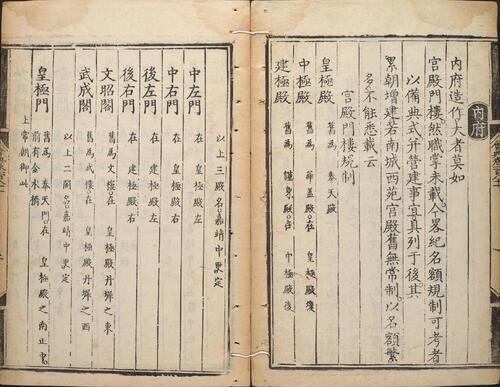 內府
內府造作大者莫如
宮殿門樓然職掌未載今畧紀名額規制可考者
以備典式幷營建事宜具列于後其
累朝增建若南城西苑宮殿舊無常制以名額繁
多不能悉載云
宮殿門樓規制
皇極殿 舊爲 奉天殿
中極殿 舊爲 華蓋殿在 皇極殿後
建極殿 舊爲 謹身殿在 中極殿後
以上三殿名嘉靖中更定
中左門 在 皇極殿左
中右門 在 皇極殿右
後左門 在 建極殿左
後右門 在 建極殿右
文昭閣 舊爲文樓在 皇極殿丹墀之東
武成閣 舊爲武樓在 皇極殿丹墀之西
以上二閣名嘉靖中更定
皇極門 舊爲 奉天門在 皇極殿之南正
前有金水橋
上常朝御此